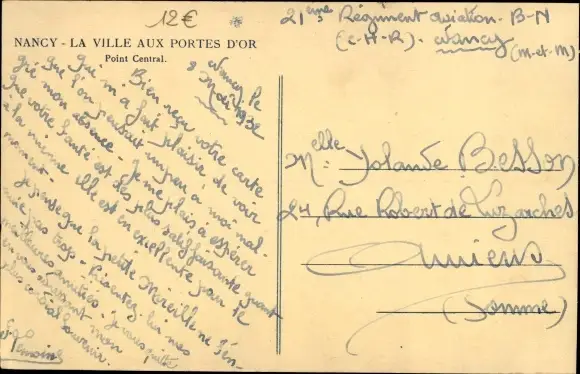 12€
NANCY - LA VILLE AUX PORTES D'OR
Point Central.
Nancy le
8 Mai 1932
Bien reçu votre carte
qui m'a fait plaisir, de voir
que l'on pensait un peu à moi mal-
gré mon absence. Je me plais à espérer
que votre santé est des plus satisfaisante quant
à la mienne elle est en excellente pour le
moment.
Je pense que la petite Mireille ne s'en-
nuie pas trop. Présentez lui mes
meilleures amitiés. Je vous quitte
en vous adressant mon
plus cordial souvenir.
Lemoine
21ème Régiment aviation. B-N
(C-H-R). Nancy (M-et-M).
Melle Yolande Besson
24, Rue Robert de Luzarches
Amiens
(Somme)